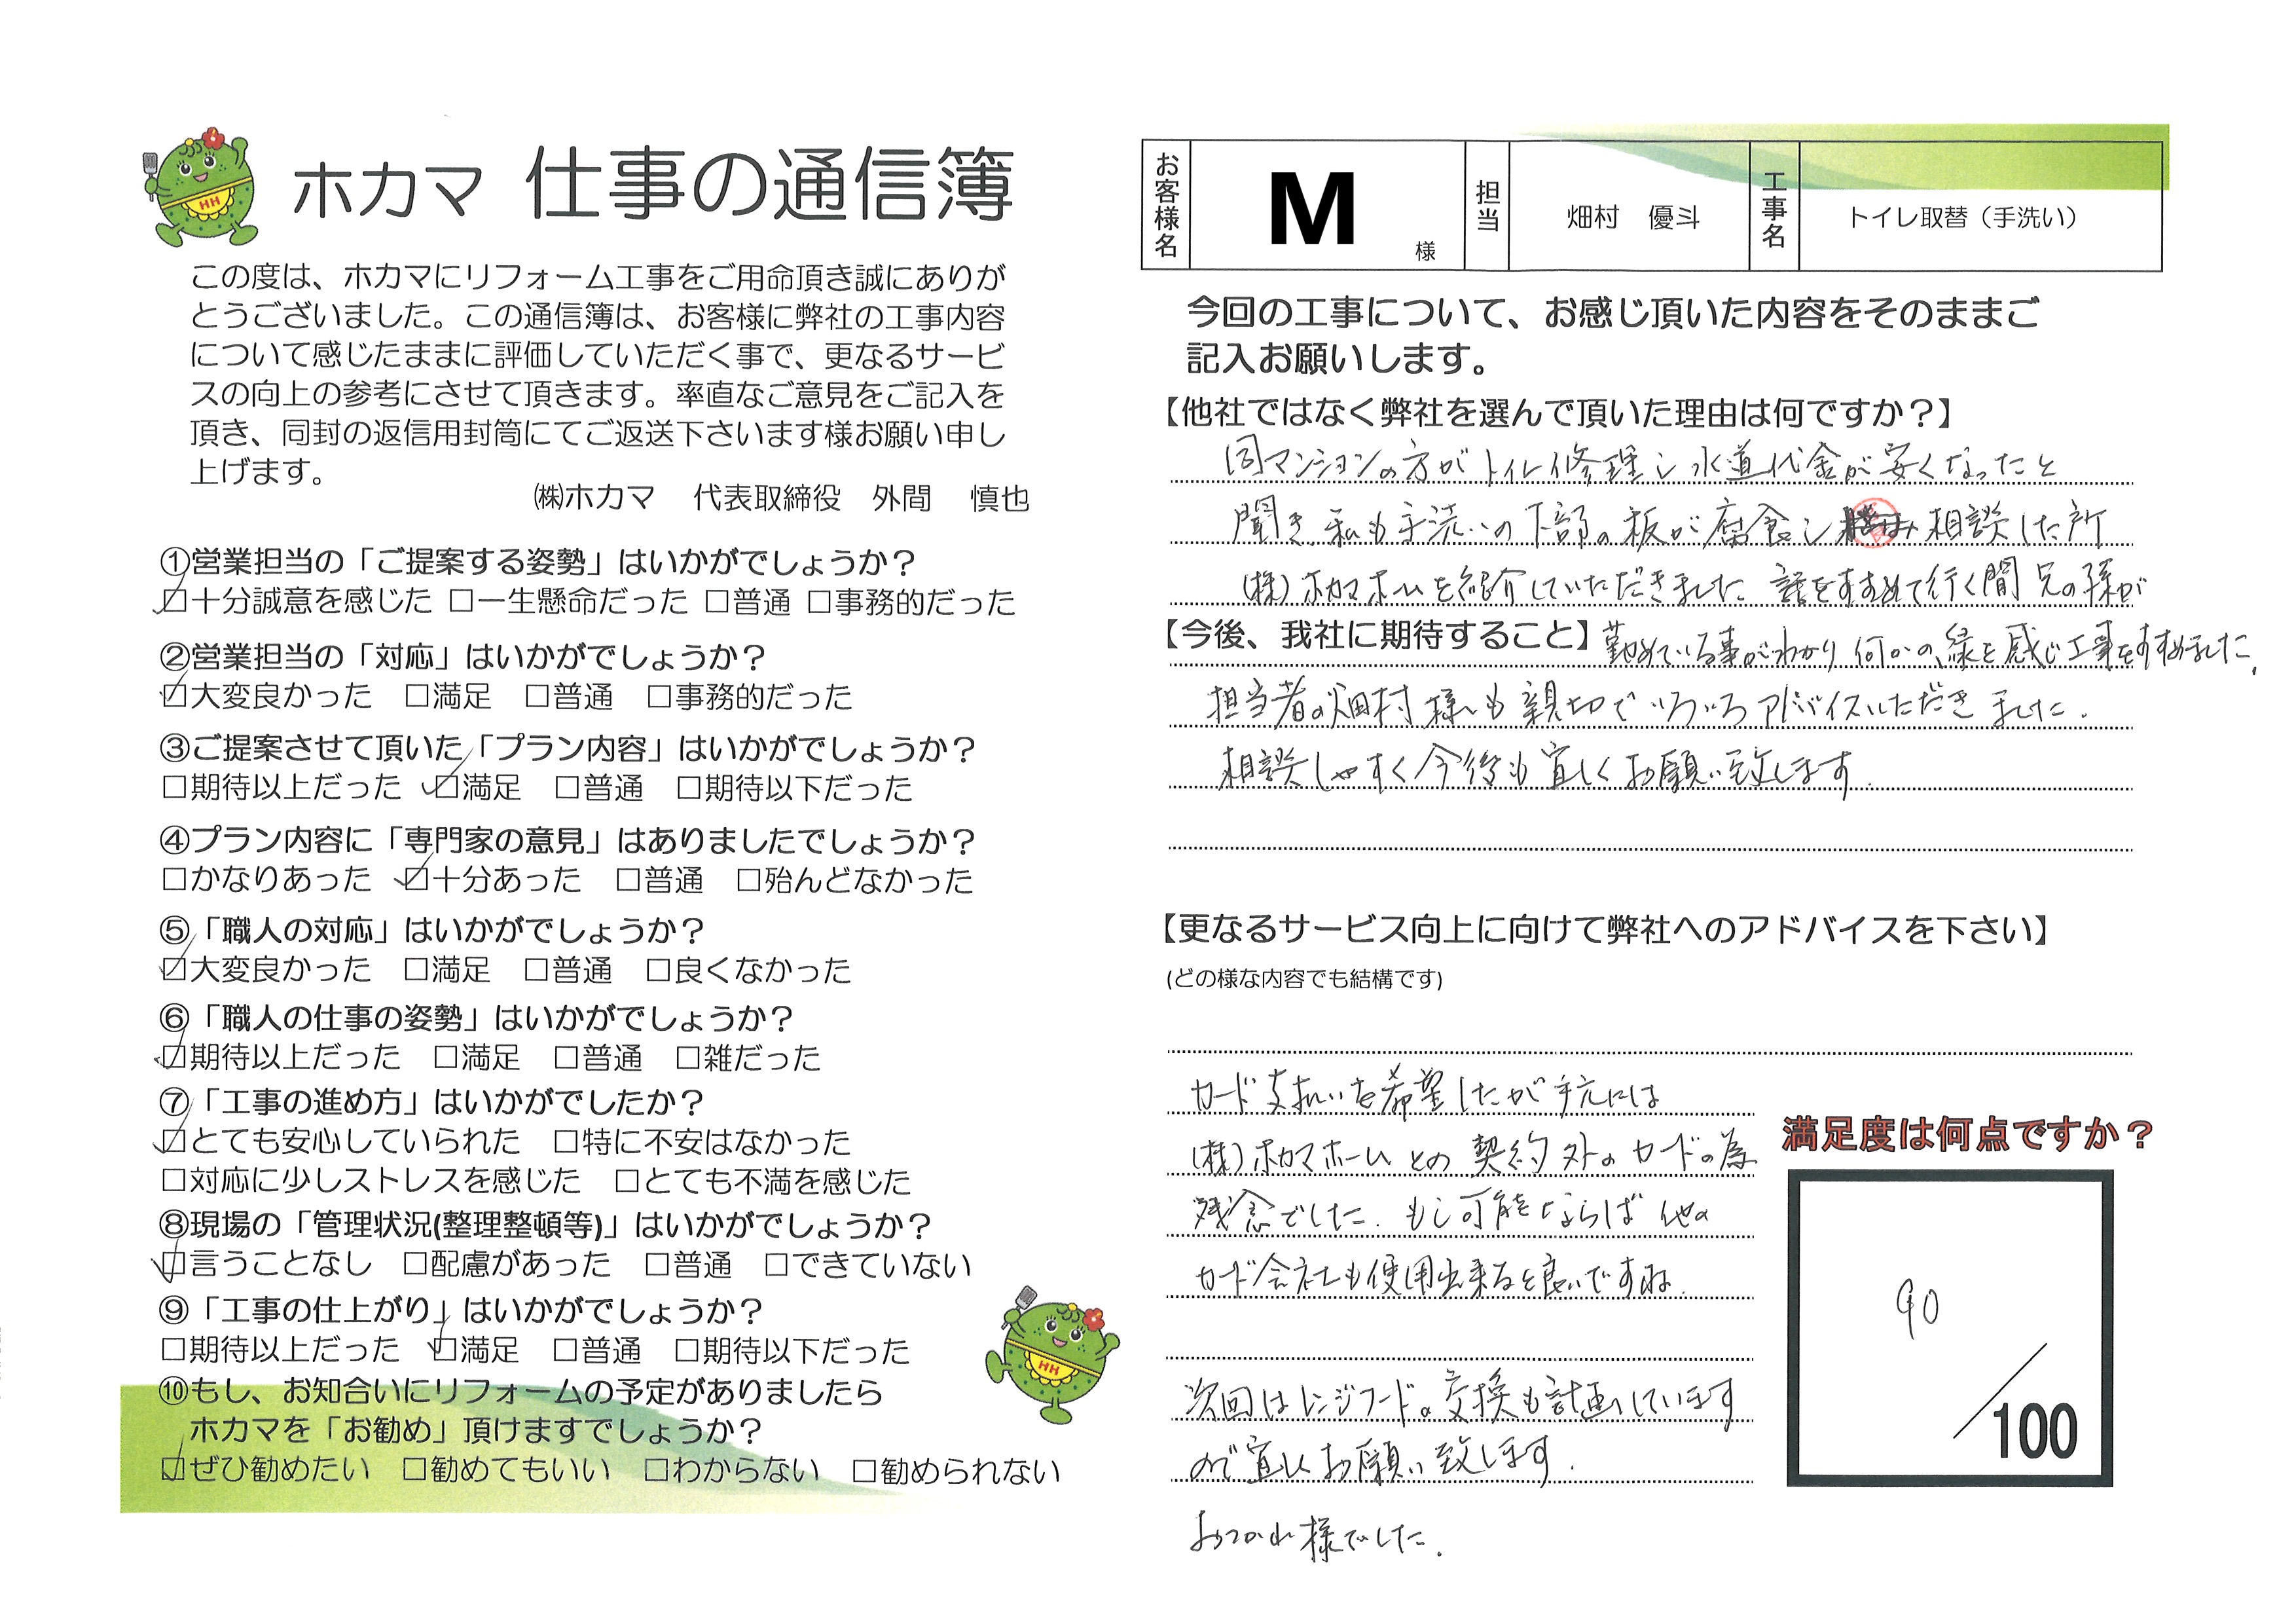 ホカマ 仕事の通信簿
この度は、ホカマにリフォーム工事をご用命頂き誠にありが
とうございました。この通信簿は、お客様に弊社の工事内容
について感じたままに評価していただく事で、更なるサービ
スの向上の参考にさせて頂きます。率直なご意見をご記入を
頂き、同封の返信用封筒にてご返送下さいます様お願い申し
上げます。
㈱ホカマ 代表取締役 外間 慎也
①営業担当の「ご提案する姿勢」はいかがでしょうか？
☑十分誠意を感じた □一生懸命だった □普通 □事務的だった
②営業担当の「対応」はいかがでしょうか？
☑大変良かった □満足 □普通 □事務的だった
③ご提案させて頂いた「プラン内容」はいかがでしょうか？
□期待以上だった ☑満足 □普通 □期待以下だった
④プラン内容に「専門家の意見」はありましたでしょうか？
□かなりあった ☑十分あった □普通 □殆んどなかった
⑤「職人の対応」はいかがでしょうか？
☑大変良かった □満足 □普通 □良くなかった
⑥「職人の仕事の姿勢」はいかがでしょうか？
☑期待以上だった □満足 □普通 □雑だった
⑦「工事の進め方」はいかがでしたか？
☑とても安心していられた □特に不安はなかった
□対応に少しストレスを感じた □とても不満を感じた
⑧現場の「管理状況(整理整頓等)」はいかがでしょうか？
☑言うことなし □配慮があった □普通 □できていない
⑨「工事の仕上がり」はいかがでしょうか？
□期待以上だった ☑満足 □普通 □期待以下だった
⑩もし、お知合いにリフォームの予定がありましたら
ホカマを「お勧め」頂けますでしょうか？
☑ぜひ勧めたい □勧めてもいい □わからない □勧められない
お客様名 M 様 担当 畑村 優斗 工事名 トイレ取替（手洗い）
今回の工事について、お感じ頂いた内容をそのままご
記入お願いします。
【他社ではなく弊社を選んで頂いた理由は何ですか？】
同マンションの方がトイレ修理し水道代金が安くなったと
聞き、私も手洗いの下部の板が腐食し 相談した所
(株)ホカマホームを紹介していただきました 話をすすめて行く間 兄の孫が
【今後、我社に期待すること】勤めている事がわかり 何かの縁を感じ工事をすすめました。
担当者の畑村様も親切でいろいろアドバイスいただきました.
相談しやすく今後も宜しくお願い致します.
【更なるサービス向上に向けて弊社へのアドバイスを下さい】
(どの様な内容でも結構です)
カード支払いを希望したが手元には
(株)ホカマホームとの契約外のカードの為
残念でした. もし可能ならば他の
カード会社も使用出来ると良いですね.
次回はレンジフードの交換も計画しています
ので宜しくお願い致します.
おつかれ様でした.
満足度は何点ですか？
90
/100